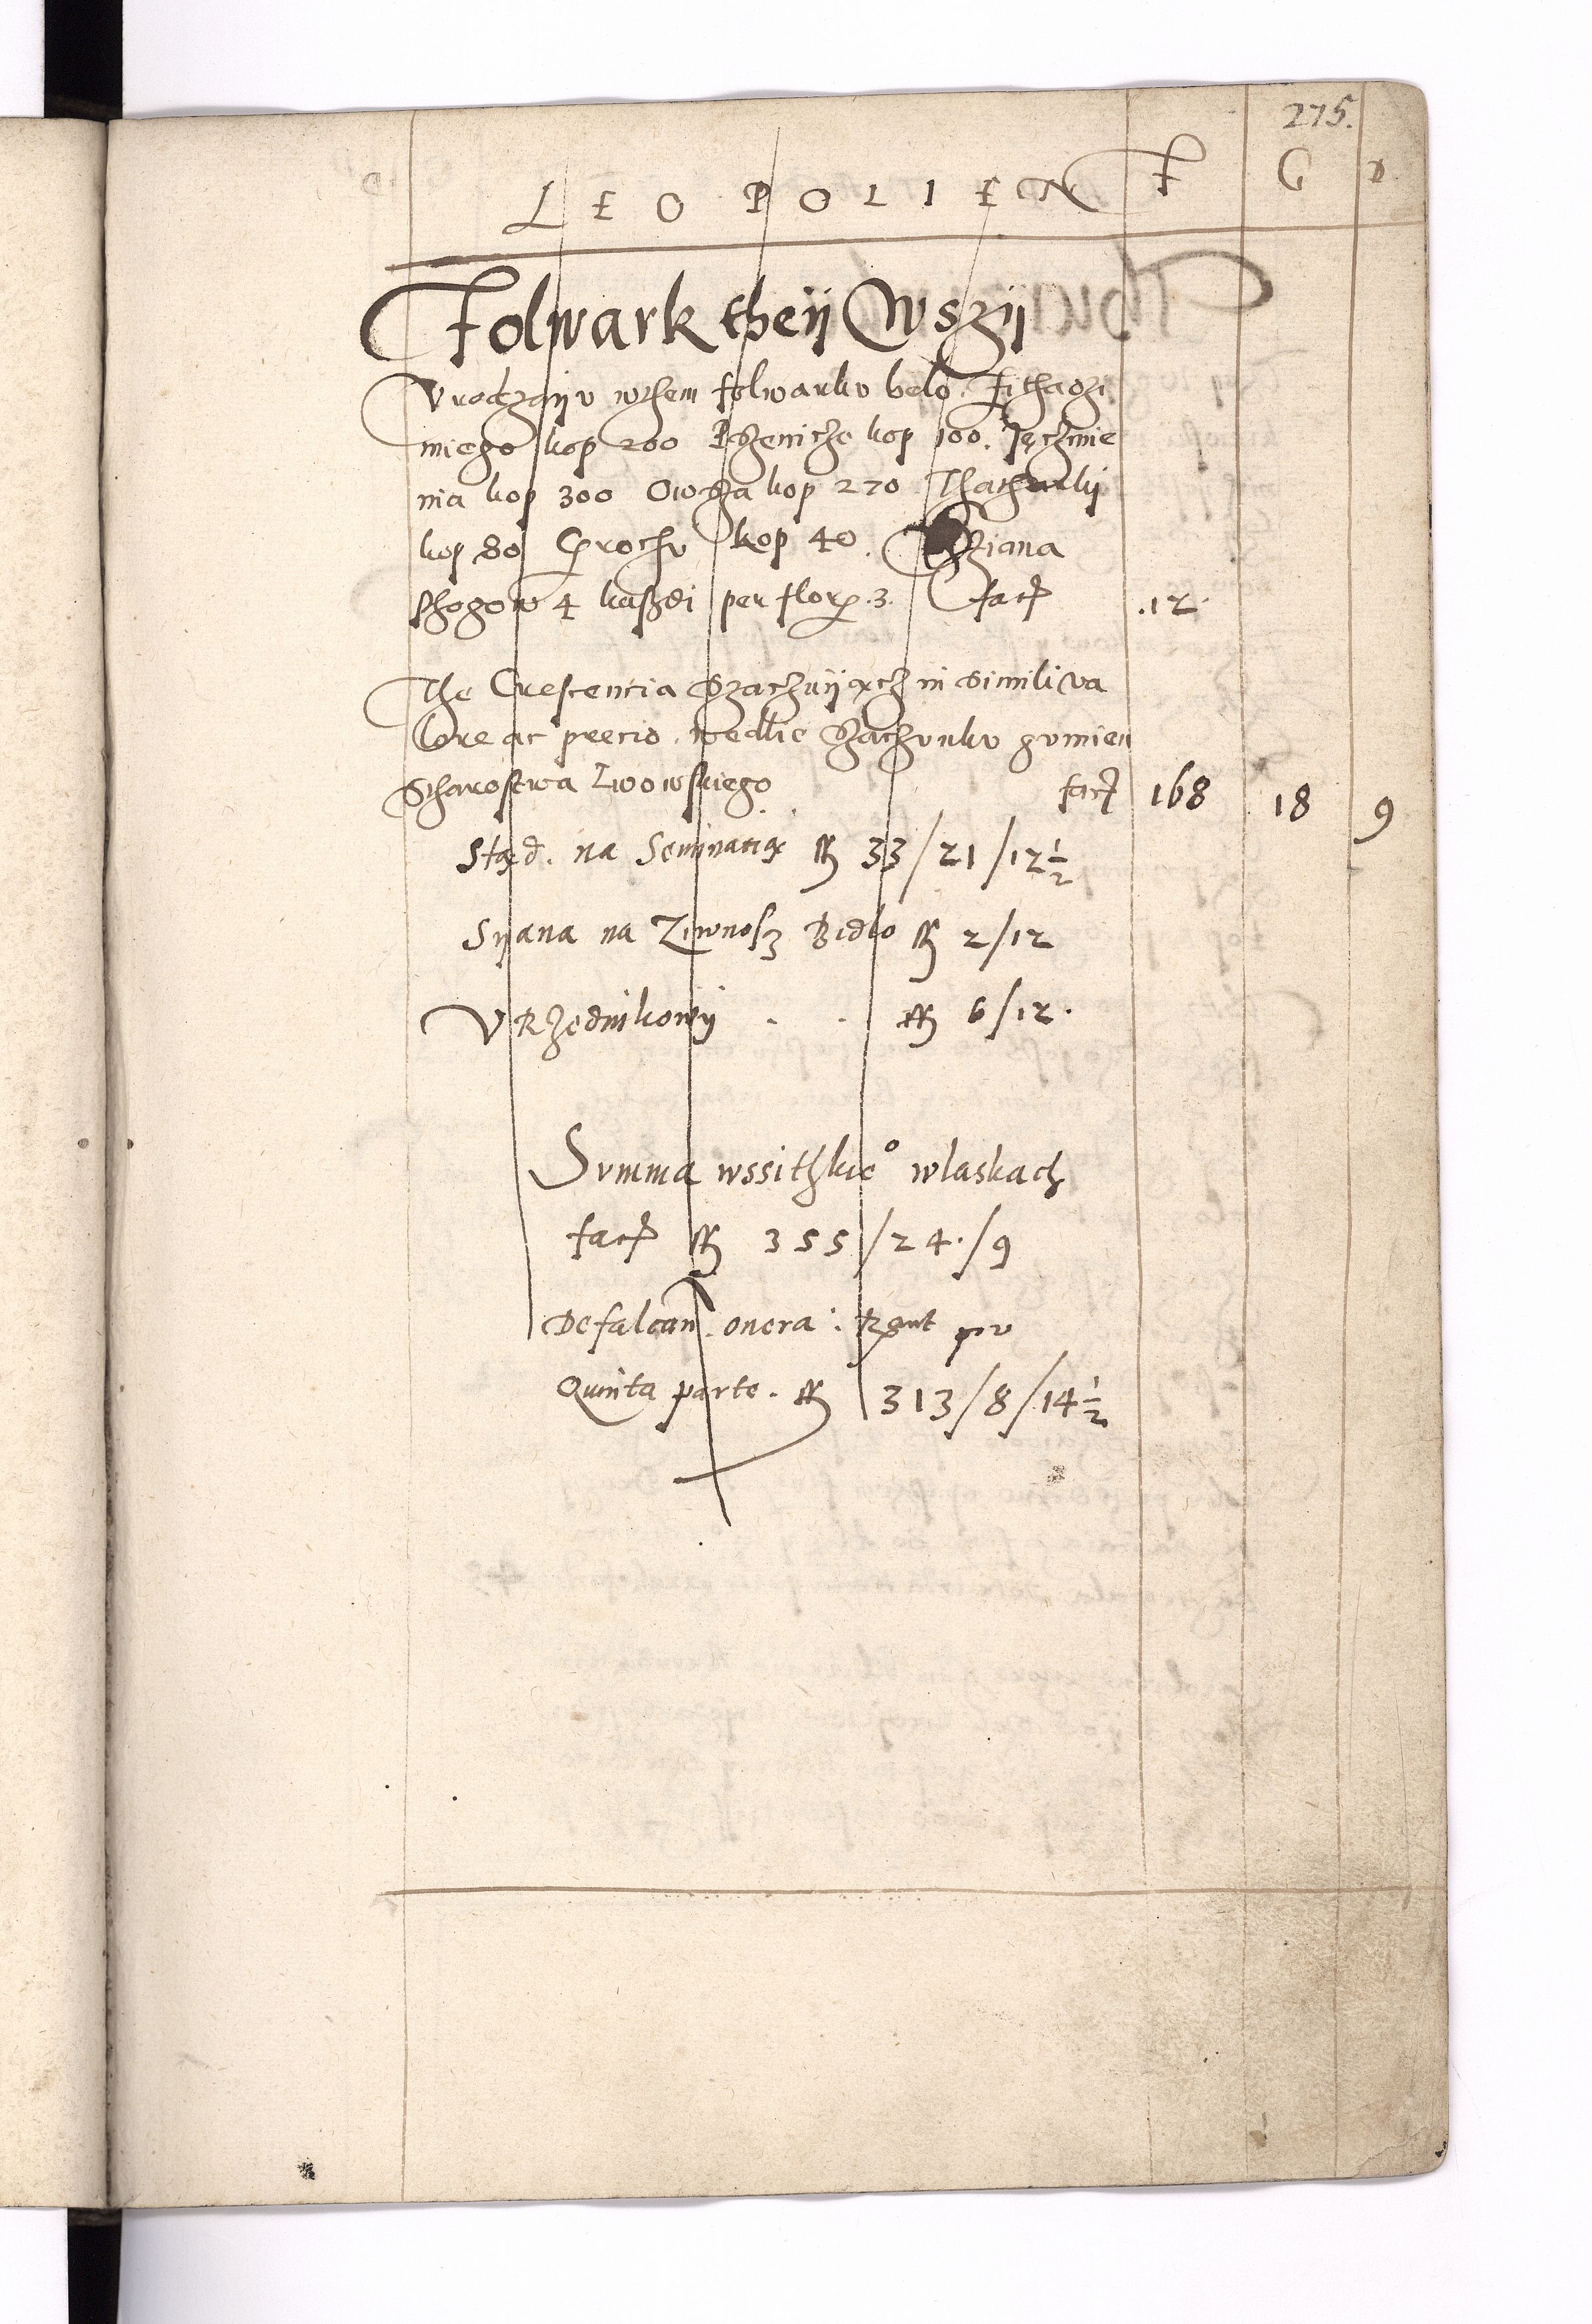 275.
LEOPOLIEN F G D
Folwark theÿ Wszÿ
Vrodzaÿv wthem folwarkv belo. Zithaozi
miego kop 200 Pszeniche kop 100. Jęczmie
nia kop 300 Owsza kop 270 Thatharki
kop 80 Grochv kop 40. Sziana
sthogow 4 kaszdi per flor. 3. facit .12.
The Crescencia Szachvÿączh in simili va
lore ac precio. wedlie Szachvnkv gvmien
Stharostwa Lwowskiego facit 168 18 9
Stąd. na Seminatią fl 33/21/12½
Sÿana na Ziwnosz Bidlo fl 2/12
VRzednikowÿ . . fl 6/12.
Svmma wssithkie° wlaskach
facit fl 355/24./9
Defalcan. onera: Rant pro
Quinta parte. fl 313/8/14½